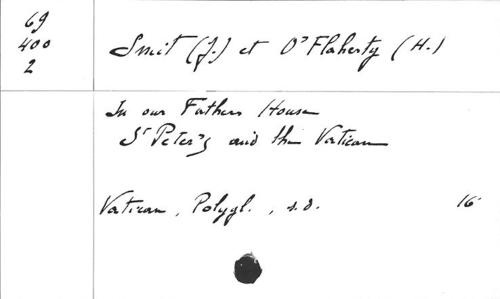 69
400
2
Smit (J.) et O'Flaherty (H.)
In our Fathers House
St Peter's and the Vatican
Vatican, Polygl., s.d. 16°